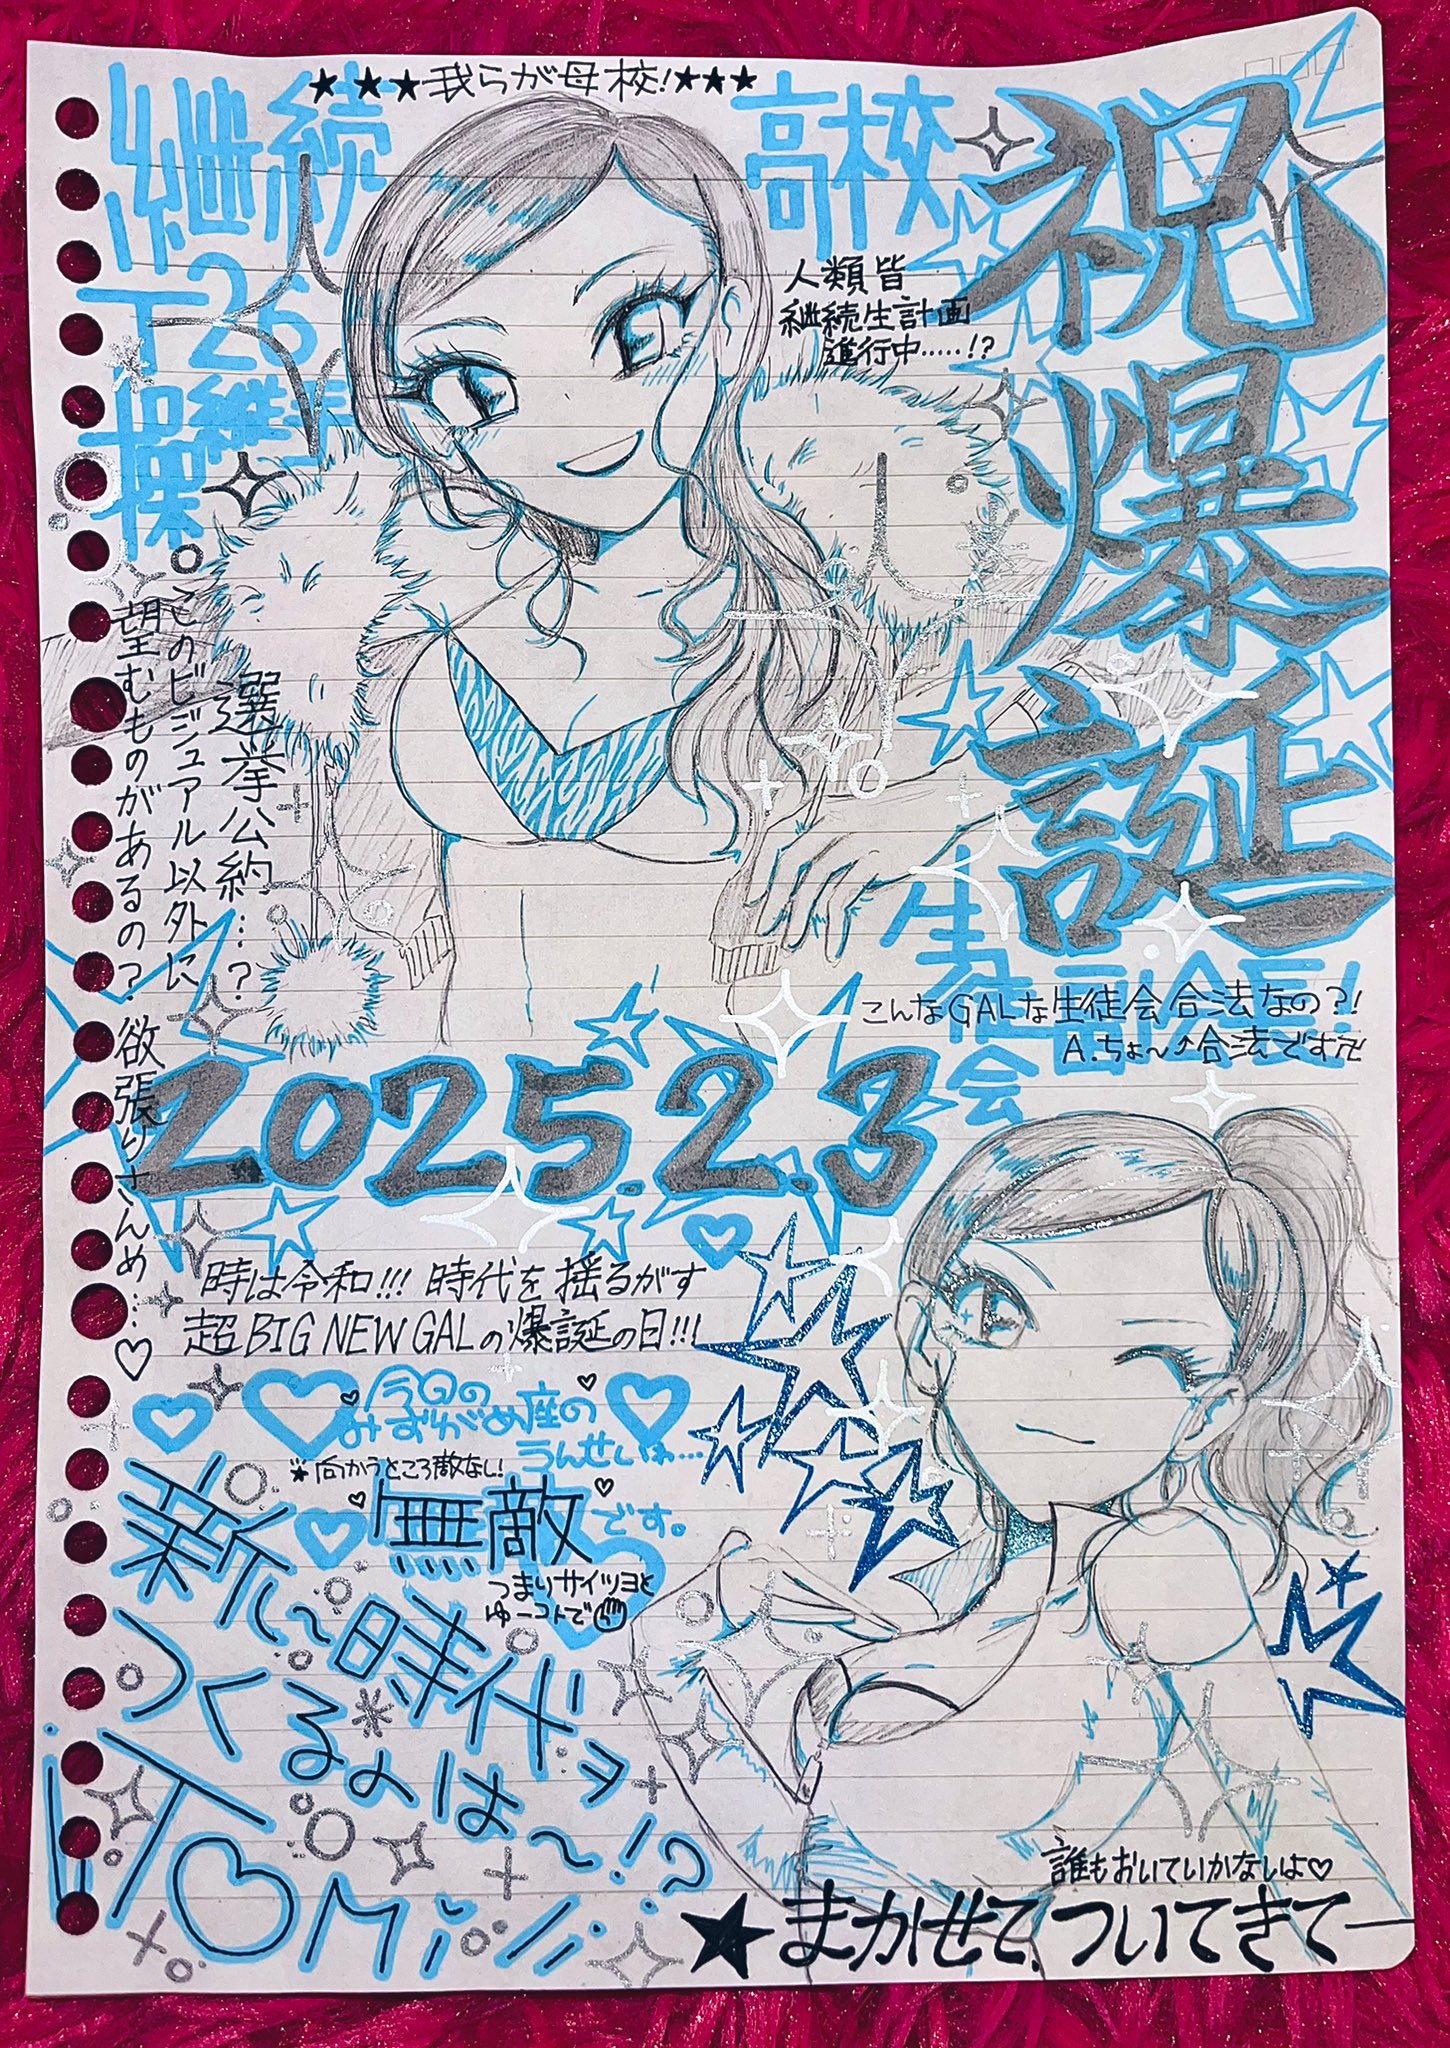 ★★★我らが母校!★★★
継続高校
祝爆誕
人類皆
継続生計画
進行中……!?
選挙公約…?
このビジュアル以外に
望むものがあるの?欲張りさんめ…♡
生徒会副会長!
こんなGALな生徒会合法なの?!
A.ちょ〜↑合法です卍
2025.2.3
時は令和!!!時代を揺るがす
超BIG NEW GALの爆誕の日!!!
今日の
みずがめ座の
うんせいゎ…
★向かうところ敵なし!
無敵です。
つまりサイツヨと
ゆーコトで
新しい時代ヲ
つくるのは〜!?
TOMi
誰もおいていかないよ♡
★まかせて、ついてきてー